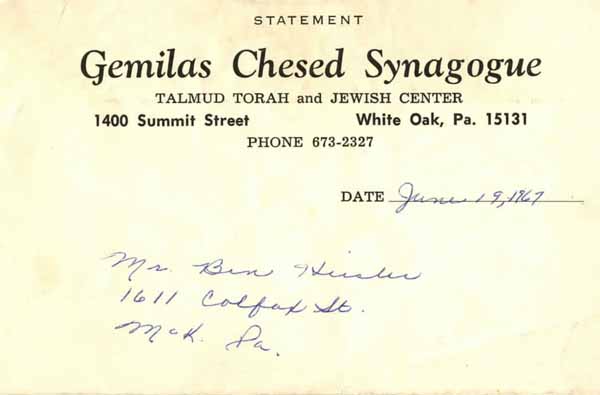 STATEMENT
Gemilas Chesed Synagogue
TALMUD TORAH and JEWISH CENTER
1400 Summit Street White Oak, Pa. 15131
PHONE 673-2327
DATE June 19, 1967
Mr. Ben
1611 Colfax St.
McK. Pa.